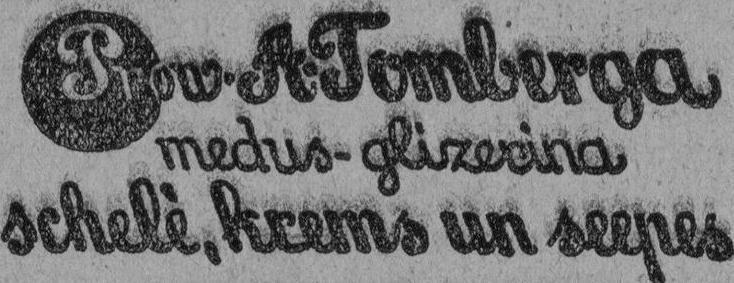 Prov. A. Tomberga
medus-glizerina
schelè, krems un seepes